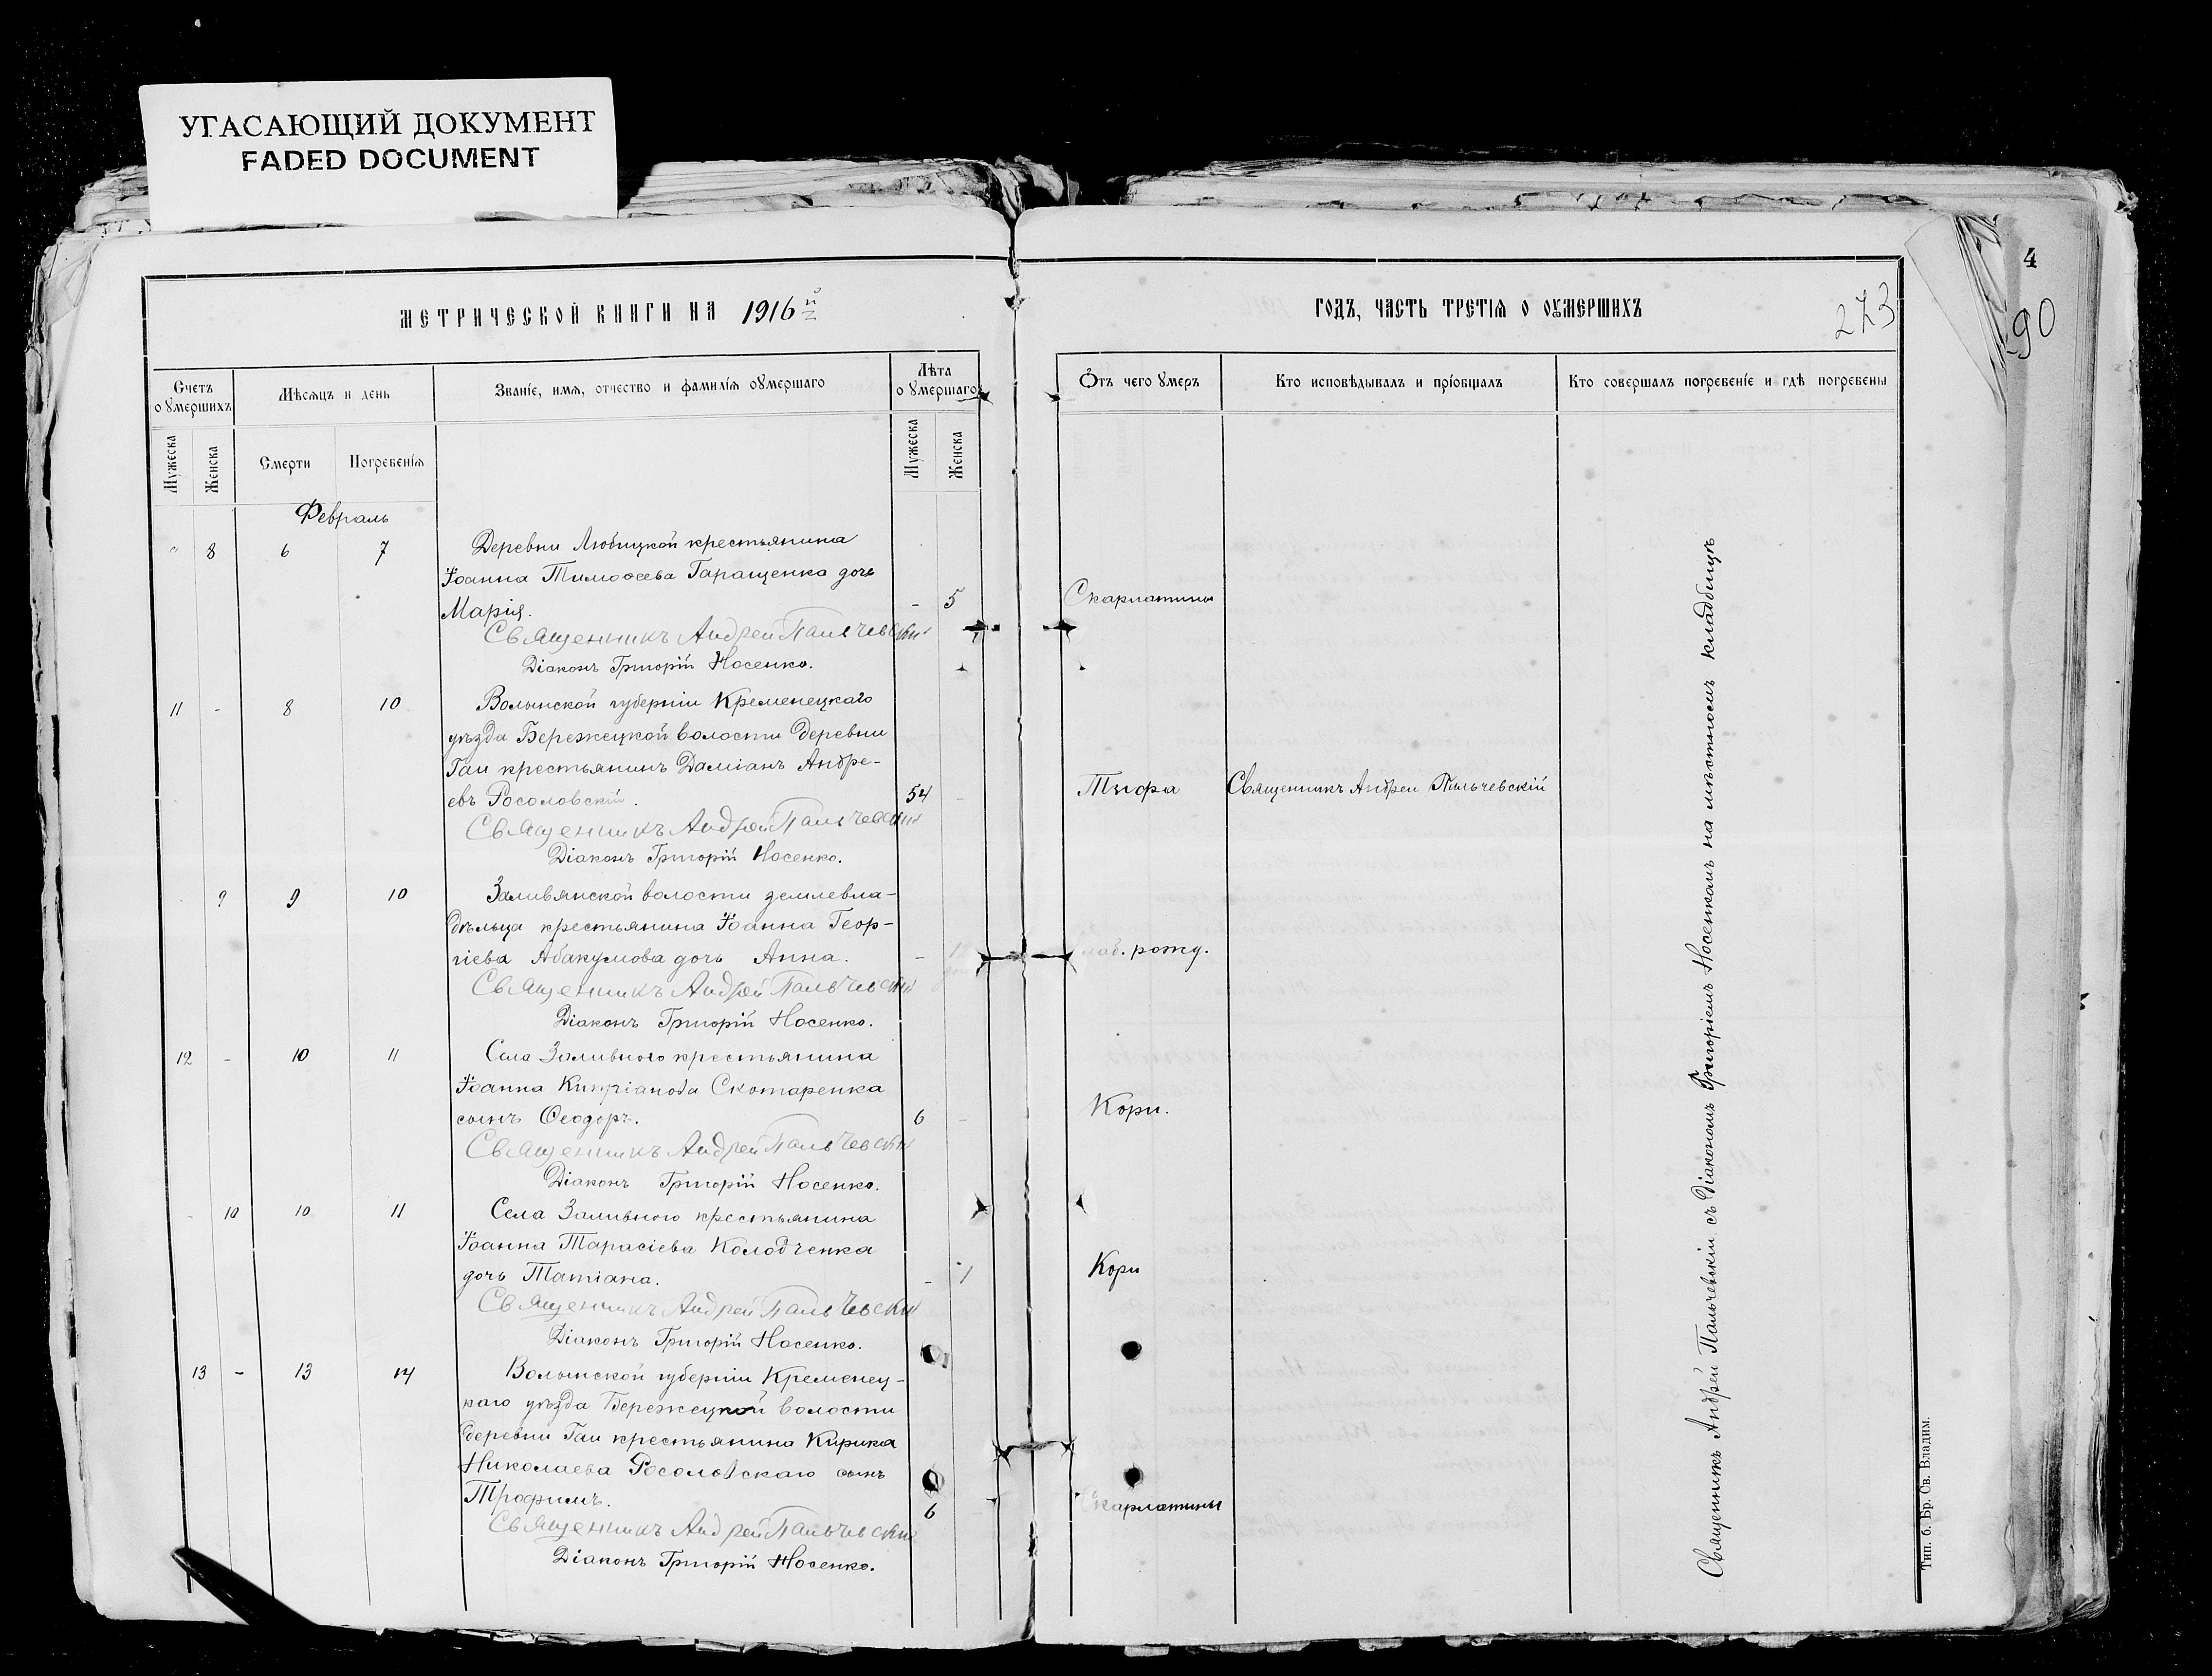 УГАСАЮЩИЙ ДОКУМЕНТ
FADED DOCUMENT
4
90
273
МЕТРИЧЕСКОЙ КНИГИ НА 1916й
ГОДЪ, ЧАСТЬ ТРЕТІЯ О ОУМЕРШИХЪ
Счетъ оумершихъ
Мѣсяцъ и день
Званіе, имя, отчество и фамилія оумершаго
Лѣта оумершаго
Отъ чего умеръ
Кто исповѣдывалъ и пріобщалъ
Кто совершалъ погребеніе и гдѣ погребены
Мужеска
Женска
Смерти
Погребенія
Мужеска
Женска
Февраль
" 8 6 7 Деревни Любицкой крестьянина
Іоанна Тимоѳеева Гаращенка дочь
Марія. - 5 Скарлатины
Священникъ Андрей Пальчевскій
Діаконъ Григорій Носенко.
11 - 8 10 Волынской губерніи Кременецкаго
уѣзда Бережецкой волости деревни
Гаи крестьянинъ Даміанъ Андре-
евъ Росоловскій. 54 - Тифа Священникъ Андрей Пальчевскій
Священникъ Андрей Пальчевскій
Діаконъ Григорій Носенко.
9 9 10 Заливянской волости землевла-
дѣльца крестьянина Іоанна Геор-
гіева Абакумова дочь Анна. - рожд.
Священникъ Андрей Пальчевскій
Діаконъ Григорій Носенко.
12 - 10 11 Села Заливного крестьянина
Іоанна Кипріанова Скотаренка
сынъ Ѳеодоръ. 6 - Кори.
Священникъ Андрей Пальчевскій
Діаконъ Григорій Носенко.
- 10 10 11 Села Заливного крестьянина
Іоанна Тарасіева Колодченка
дочь Татіана. - 1 Кори
Священникъ Андрей Пальчевскій
Діаконъ Григорій Носенко.
13 - 13 14 Волынской губерніи Кременец-
каго уѣзда Бережецкой волости
деревни Гаи крестьянина Кирика
Николаева Росоловскаго сынъ
Трофимъ. 6 Скарлатины
Священникъ Андрей Пальчевскій
Діаконъ Григорій Носенко.
Священникъ Андрей Пальчевскій съ Діакономъ Григоріемъ Носенкомъ на мѣстномъ кладбищѣ
Тип. б. Бр. Св. Владим.